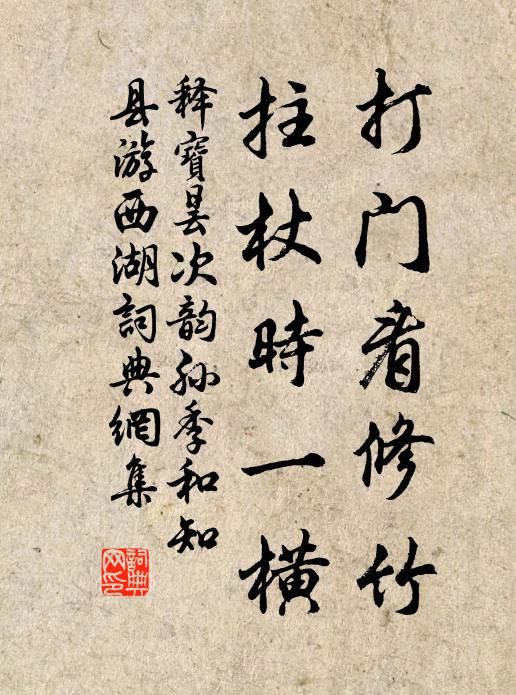 打门看修竹
拄杖時一橫
释寶曇次韵孙季和知
县游西湖詞典網集
詞典网印